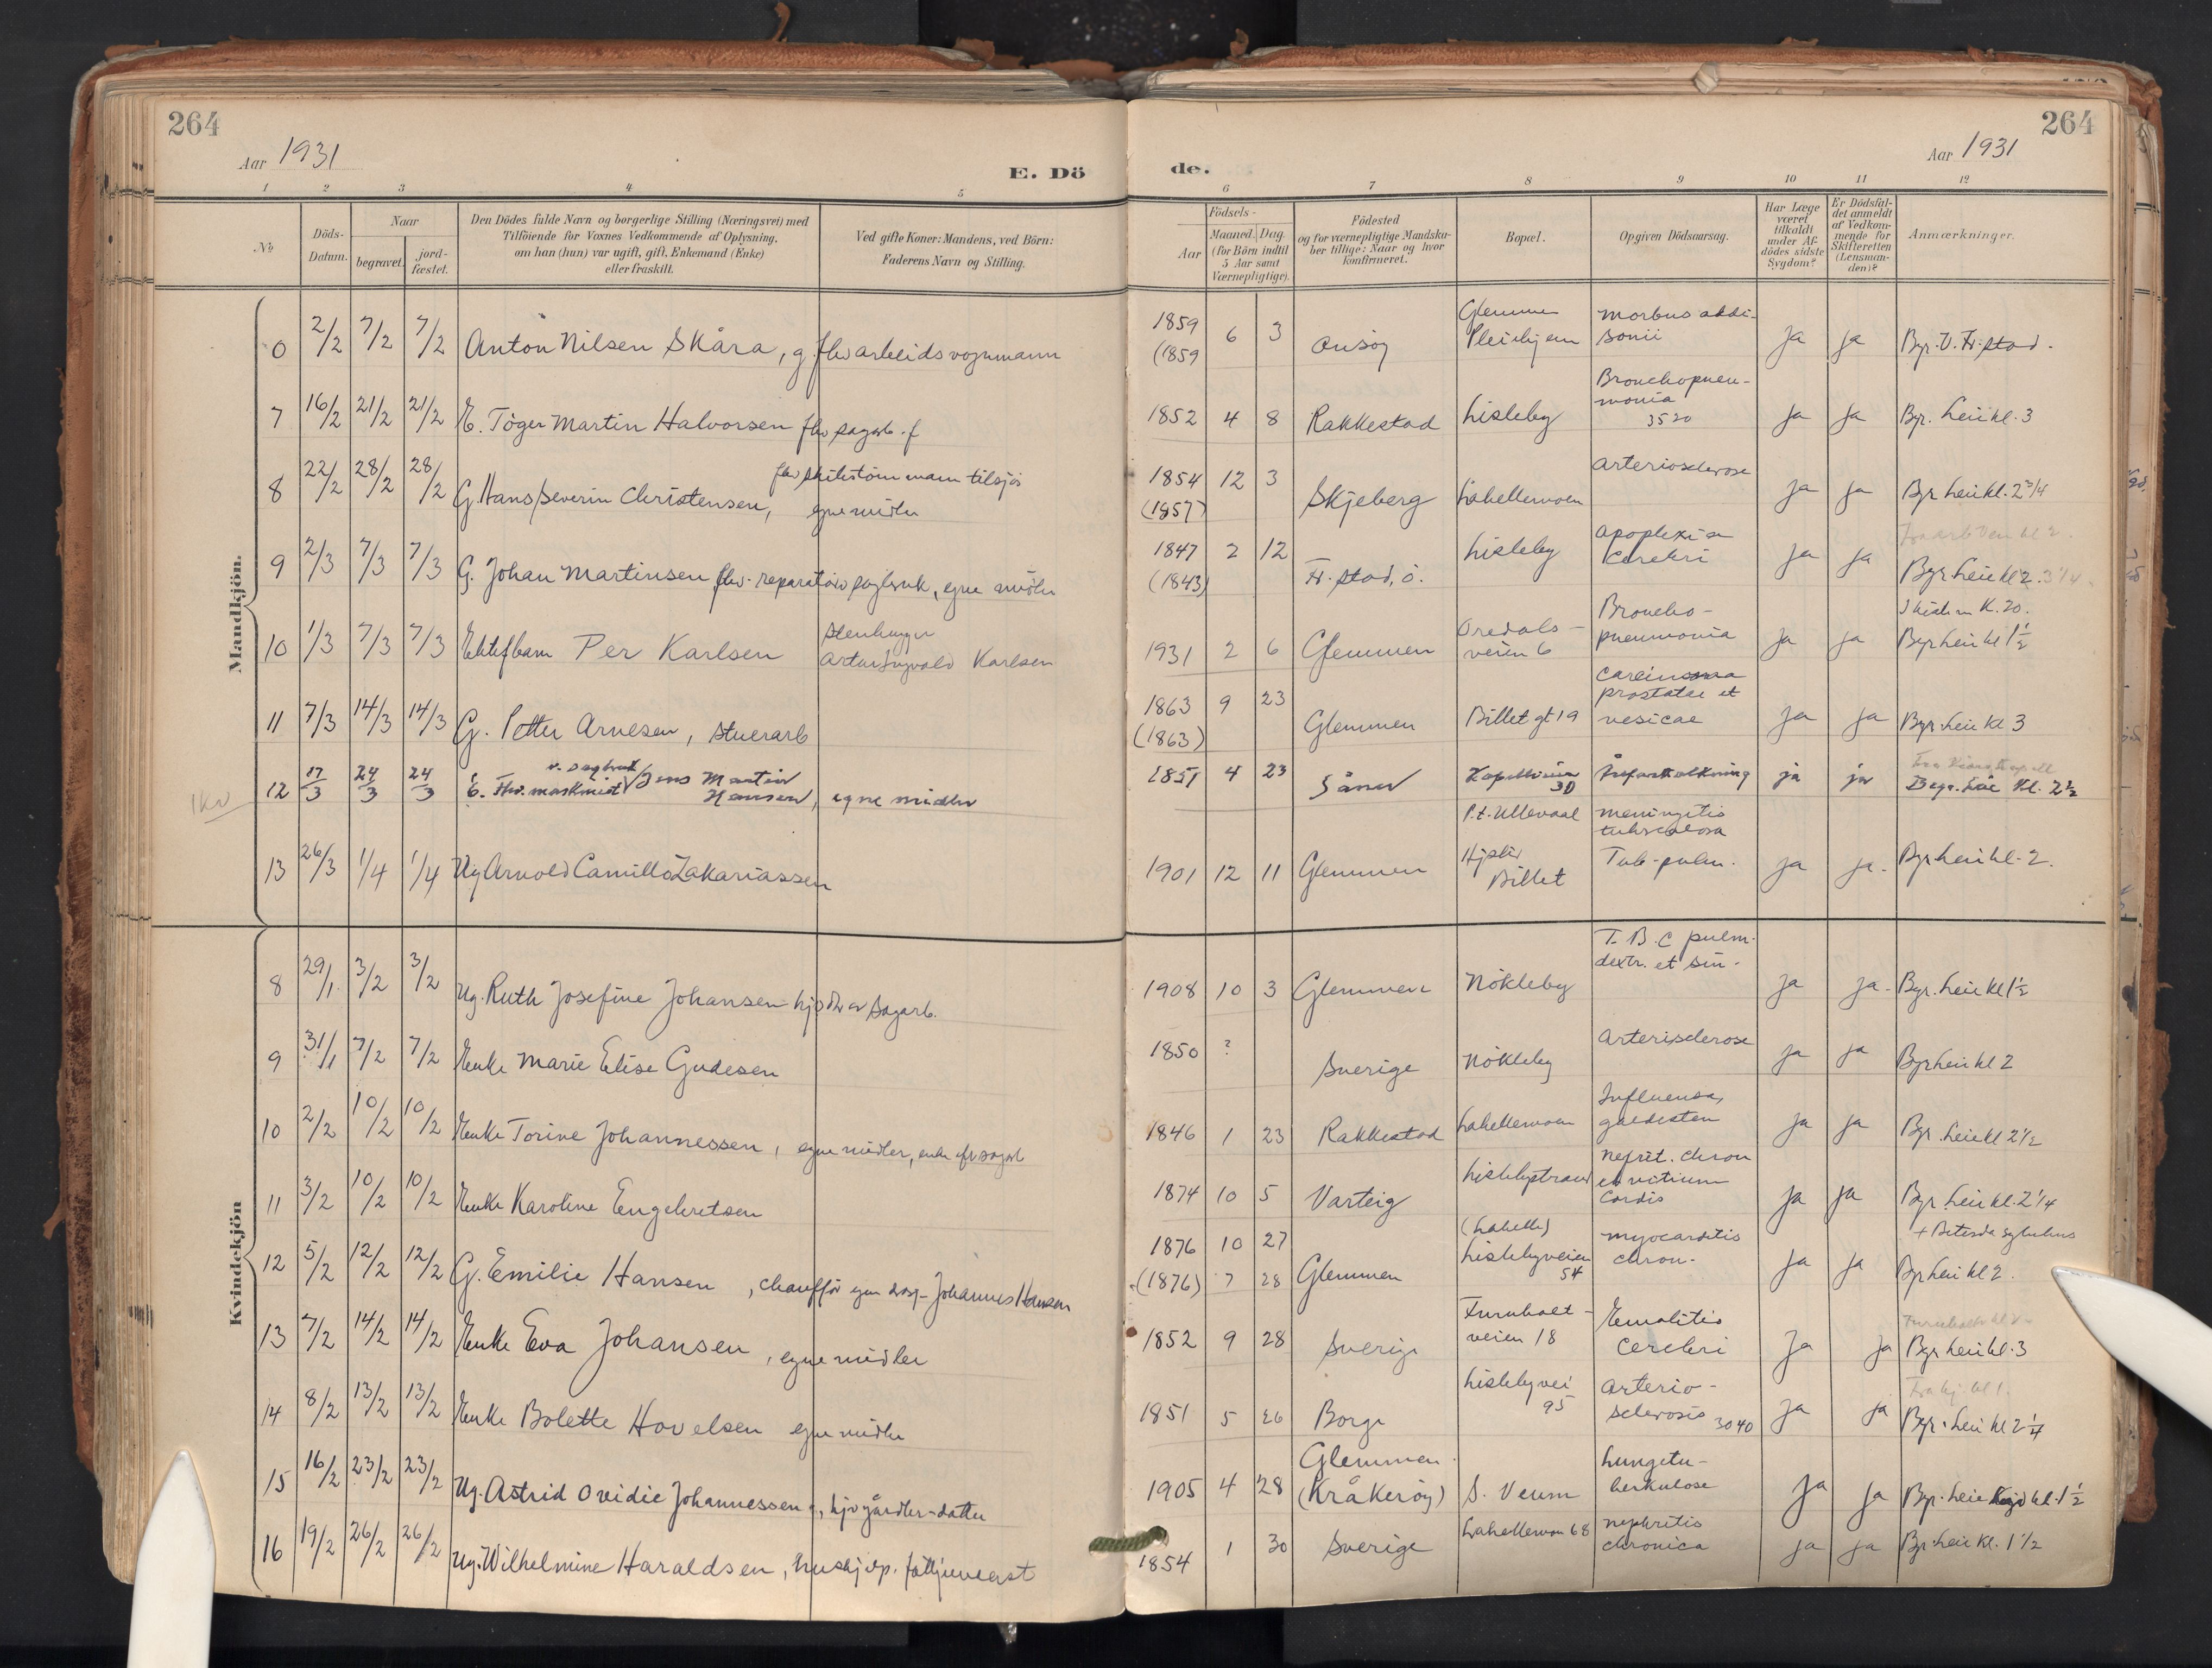 264
Aar 1931
E. Dö
1 2 3 4 5
No
Döds-Datum.
Naar
begravet.
jord-fæstet.
Den Dödes fulde Navn og borgerlige Stilling (Næringsvei) med
Tilföiende for Voxnes Vedkommende af Oplysning,
om han (hun) var ugift, gift, Enkemand (Enke)
eller fraskilt.
Ved gifte Koner: Mandens, ved Börn:
Faderens Navn og Stilling.
Mandkjön.
0 2/2 7/2 7/2 Anton Nilsen Skåra, g. flw arbeidsvognmann
7 16/2 21/2 21/2 E. Töger Martin Halvorsen flw sagarb. f
8 22/2 28/2 28/2 G. Hans Severin Christensen, egne midler
9 2/3 7/3 7/3 G. Johan Martinsen flw. reparatör sagbruk, egne midler
10 1/3 7/3 7/3 Ektef barn Per Karlsen
Stenhugger
Artur Ingvald Karlsen
11 7/3 14/3 14/3 G. Petter Arnesen, stuerarb
12 17/3 24/3 24/3 Jens Martin
Hansen, egne midler
13 26/3 1/4 1/4 Ug Arnold Camillo Zakariassen
Kvindekjön
8 29/1 3/2 3/2 Ug. Ruth Josefine Johansen
9 31/1 7/2 7/2 Enke Marie Elise Gudesen
10 2/2 10/2 10/2 Enke Torine Johannessen, egne midler, enke eft sagarb
11 3/2 10/2 10/2 Enke Karoline Engebretsen
12 5/2 12/2 12/2 G. Emilie Hansen, chaufför egen Johannes Hansen
13 7/2 14/2 14/2 Enke Eva Johansen, egne midler
14 8/2 13/2 13/2 Enke Bolette Hovelsen egne midler
15 16/2 23/2 23/2 Ug. Astrid Ovidie Johannessen
16 19/2 26/2 26/2 Ug. Wilhelmine Haraldsen, hushjelp.
264
de.
Aar 1931
6 7 8 9 10 11 12
Födsels-
Aar
Maaned. Dag.
(for Börn indtil
5 Aar samt
Værnepligtige).
Födested
og for værnepligtige Mandska-
ber tillige: Naar og hvor
konfirmeret.
Bopæl.
Opgiven Dödsaarsag.
Har Læge
været
tilkaldt
under Af-
dödes sidste
Sygdom?
Er Dödsfal-
det anmeldt
af Vedkom-
mende for
Skifteretten
(Lensman-
den)?
Anmærkninger.
1859 (1859 6 3 Onsöy Glemmen Pleiehjem Morbus addi-sonii Ja Ja Byr. V. Fr.stad.
1852 4 8 Rakkestad Lisleby Bronchopneu-monia 3520 Ja Ja Byr. Leie kl. 3
1854 (1857) 12 3 Skjeberg Lahellemoen Arteriosclerose Ja Ja Byr Leie kl. 2 3/4
1847 (1843) 2 12 Fr.stad, ö. Lisleby Apoplexia Cerebri Ja Ja Byr Leie kl 2. 3 1/4
1931 2 6 Glemmen Oredals-veien 6 Broncho-pneumonia Ja Ja Byr Leie kl 1 1/2
1863 (1863) 9 23 Glemmen Billet gt 19 Carcinoma prostatae et vesicae Ja Ja Byr. Leie kl 3
1851 4 23 Såner Kapellveien 30 Åreforkalkning ja ja Begr. Leie Kl. 2 1/2
1901 12 11 Glemmen P.t. Ullevaal Billet Meningitis tuberculosa Tub-pulm. Ja Ja. Byr Leie kl. 2.
1908 10 3 Glemmen Nökleby T.B.C pulm. dextr. et sin. Ja Ja. Byr. Leie kl 1 1/2
1850 ? Sverige Nökleby Arterisclerose Ja Ja Byr Leie kl 2
1846 1 23 Rakkestad Lahellemoen Influensa, galdesten Ja Ja Byr. Leie kl 2 1/2
1874 10 5 Varteig Lislebystrand Nefrit. chron et vitium Cordis Ja Ja Byr. Leie kl. 2 1/4
1876 (1876) 10 27 7 28 Glemmen (Lahelle) Lislebyveien 54 Myocarditis chron. Ja Ja + Betesda sykehus Byr Leie kl 2.
1852 9 28 Sverige Furuholt-veien 18 Emolitio Cerebri Ja Ja Byr Leie kl. 3
1851 5 26 Borge Lislebyvei 95 Arterio-sclerosis 3040 Ja Ja Byr. Leie kl 2 1/4
1905 4 28 Glemmen (Kråkeröy) S. Veum Lungetu-berkulose Ja Ja Byr. Leie kl. 1 1/2
1854 1 30 Sverige Lahellemoen 68 Nephritis chronica Ja Ja Byr. Leie kl. 1 1/2